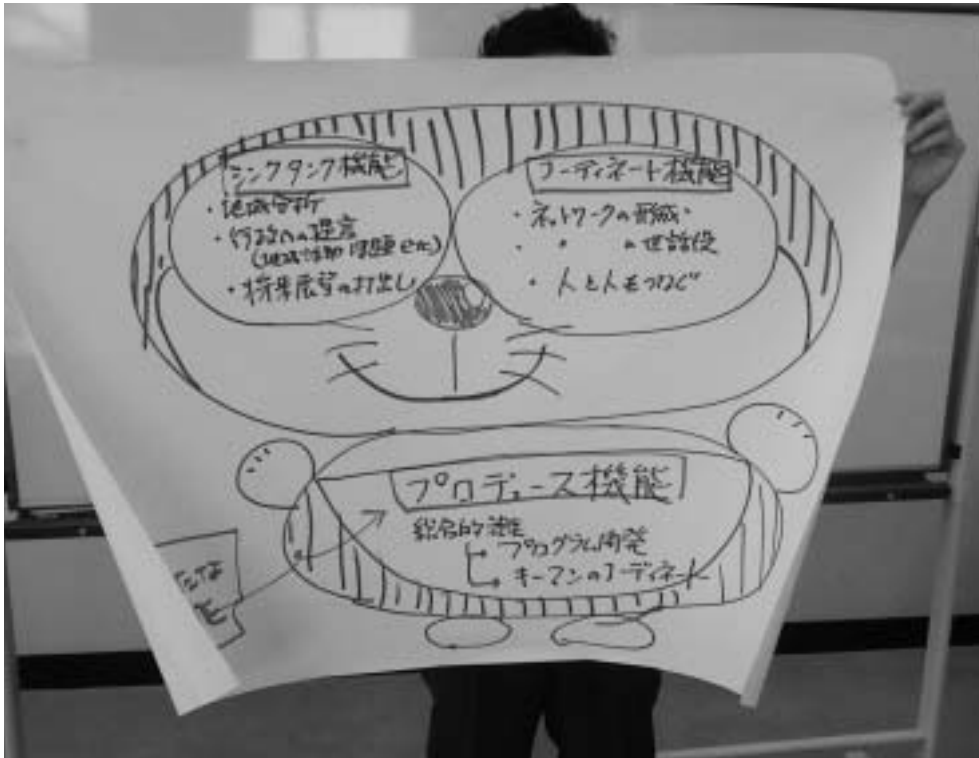 シンクタンク機能
・地域分析
・行政への提言
(地域活動 課題 etc)
・将来展望の打出し
コーディネート機能
・ネットワークの形成・
・ 〃 の世話役
・人と人をつなぐ
プロデュース機能
総合的
プログラム開発
キーマンのコーディネート
たな